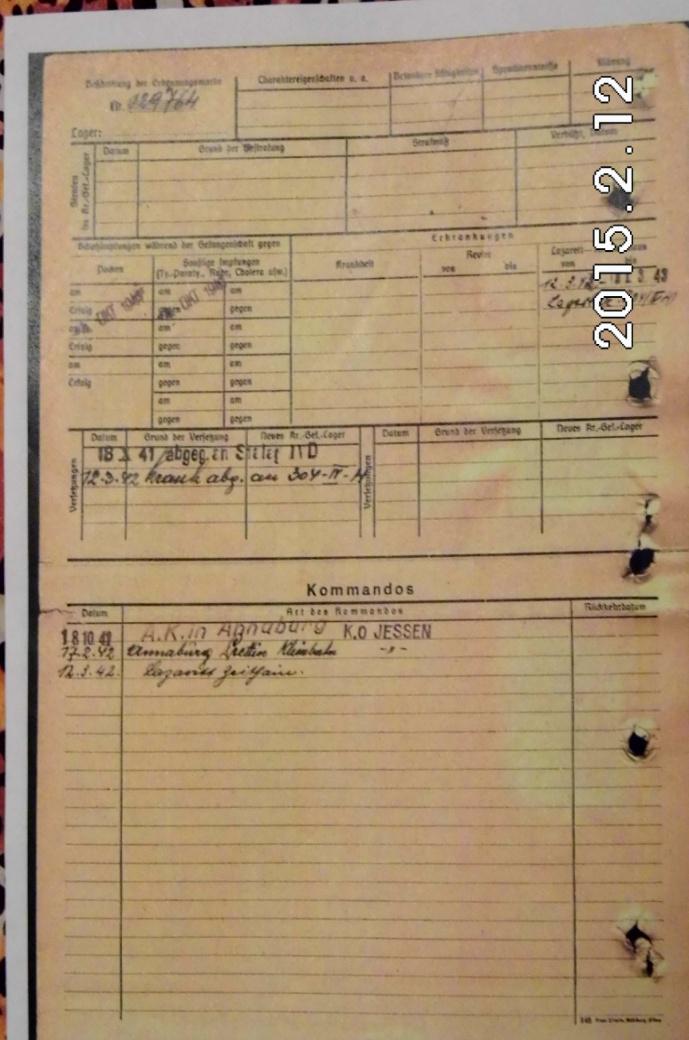 Beschriftung der Erkennungsmarke
Nr. 129764
Lager:
Charaktereigenschaften u. a.
Besondere Fähigkeiten
Sprachkenntnisse
Führung
Strafen im Kr.-Gef.-Lager
Datum
Grund der Bestrafung
Strafmaß
Verbüßt, Datum
Schutzimpfungen während der Gefangenschaft gegen
Erkrankungen
Pocken
Sonstige Impfungen
(Ty.-Paraty., Ruhr, Cholera usw.)
Krankheit
Revier
von bis
Lazarett
von
am am am
OKT 1941 OKT 1941
Erfolg gegen gegen
am am am
Erfolg gegen gegen
am am am
Erfolg gegen gegen
am am
gegen gegen
12.3.42
3. 43
Versetzungen
Datum Grund der Versetzung Neues Kr.-Gef.-Lager
18 X 41 abgeg. an Stalag IV D
12.3.42 krank abg. an 304-IV-H
Versetzungen
Datum Grund der Versetzung Neues Kr.-Gef.-Lager
Kommandos
Datum Art des Kommandos Rückkehrdatum
18 10 41 A.K. in Annaburg K.O JESSEN
17.2.42 Annaburg Prettin Kleinbahn -"-
12.3.42. Lazarett Zeithain.
2015.2.12